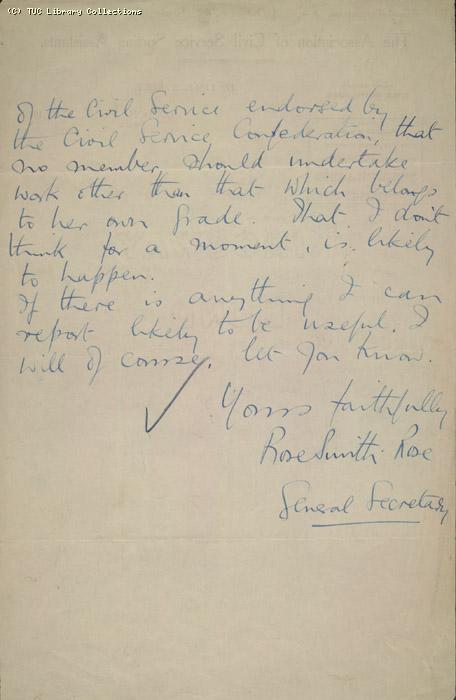 (C) TUC Library Collections
The Association of Civil Service Sorting Assistants.
of the Civil Service endorsed by
the Civil Service Confederation, that
no member should undertake
work other than that which belongs
to her own grade. That I don't
think for a moment, is likely
to happen.
If there is anything I can
report likely to be useful, I
will of course, let you know.
Yours faithfully
Rose Smith-Rose
General Secretary